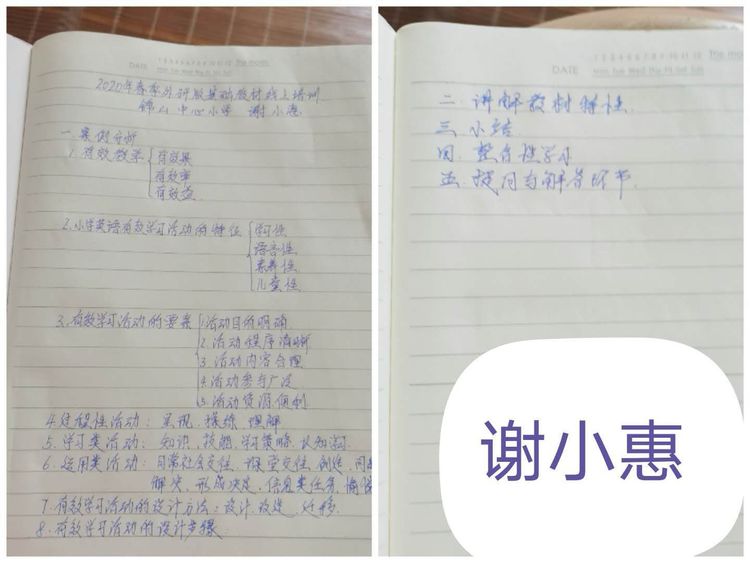 DATE
2020年春季外研版基础教材线上培训
锦山中心小学 谢小惠
一.案例分析
1.有效教学
有效果
有效率
有效益
2.小学英语有效学习活动的特征
学习性
语言性
素养性
儿童性
3.有效学习活动的要素
1.活动目的明确
2.活动程序清晰
3.活动内容合理
4.活动参与广泛
5.活动资源便利
4.过程性活动:呈现、操练、理解
5.学习类活动:知识、技能、学习策略、认知学习
6.运用类活动:日常社会交往、课堂交往、创造、问题
解决、形成决定、信息类任务、情使
7.有效学习活动的设计方法:设计、改进、迁移
8.有效学习活动的设计步骤:
DATE
二.讲解教材特性
三.小结
四.整合性学习
五.提问与解答环节
谢小惠